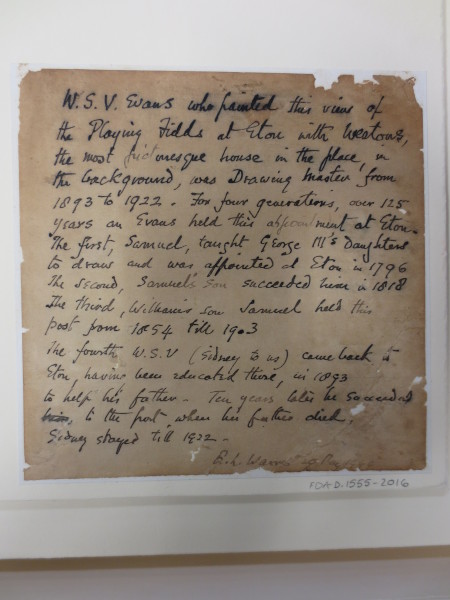 W.S.V. Evans who painted this view of
the Playing Fields at Eton with Westons,
the most picturesque house in the place, in
the background, was Drawing Master from
1893 to 1922. For four generations, over 125
years an Evans held this appointment at Eton.
The first, Samuel, taught George III's Daughters
to draw and was appointed at Eton in 1796
The second, Samuel's son succeeded him in 1818
The third, William's son Samuel held this
post from 1854 till 1903
The fourth W.S.V (Sidney to us) came back to
Eton having been educated there, in 1893
to help his father - Ten years later he succeeded
to the post, when his father died.
Sidney stayed till 1922 -
FDA-D.1555-2016